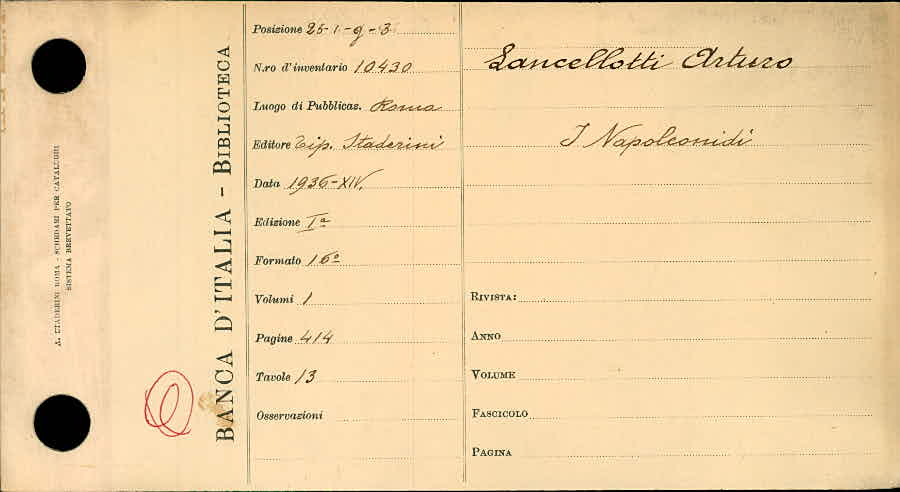 A. STADERINI ROMA - SCHEDARI PER CATALOGHI
SISTEMA BREVETTATO
BANCA D'ITALIA - BIBLIOTECA
Posizione 25-1-g-3
N.ro d'inventario 10430
Luogo di Pubblicaz. Roma
Editore Tip. Staderini
Data 1936-XIV.
Edizione Iª
Formato 16º
Volumi 1
Pagine 414
Tavole 13
Osservazioni
Lancellotti Arturo
I Napoleonidi
RIVISTA:
ANNO
VOLUME
FASCICOLO
PAGINA